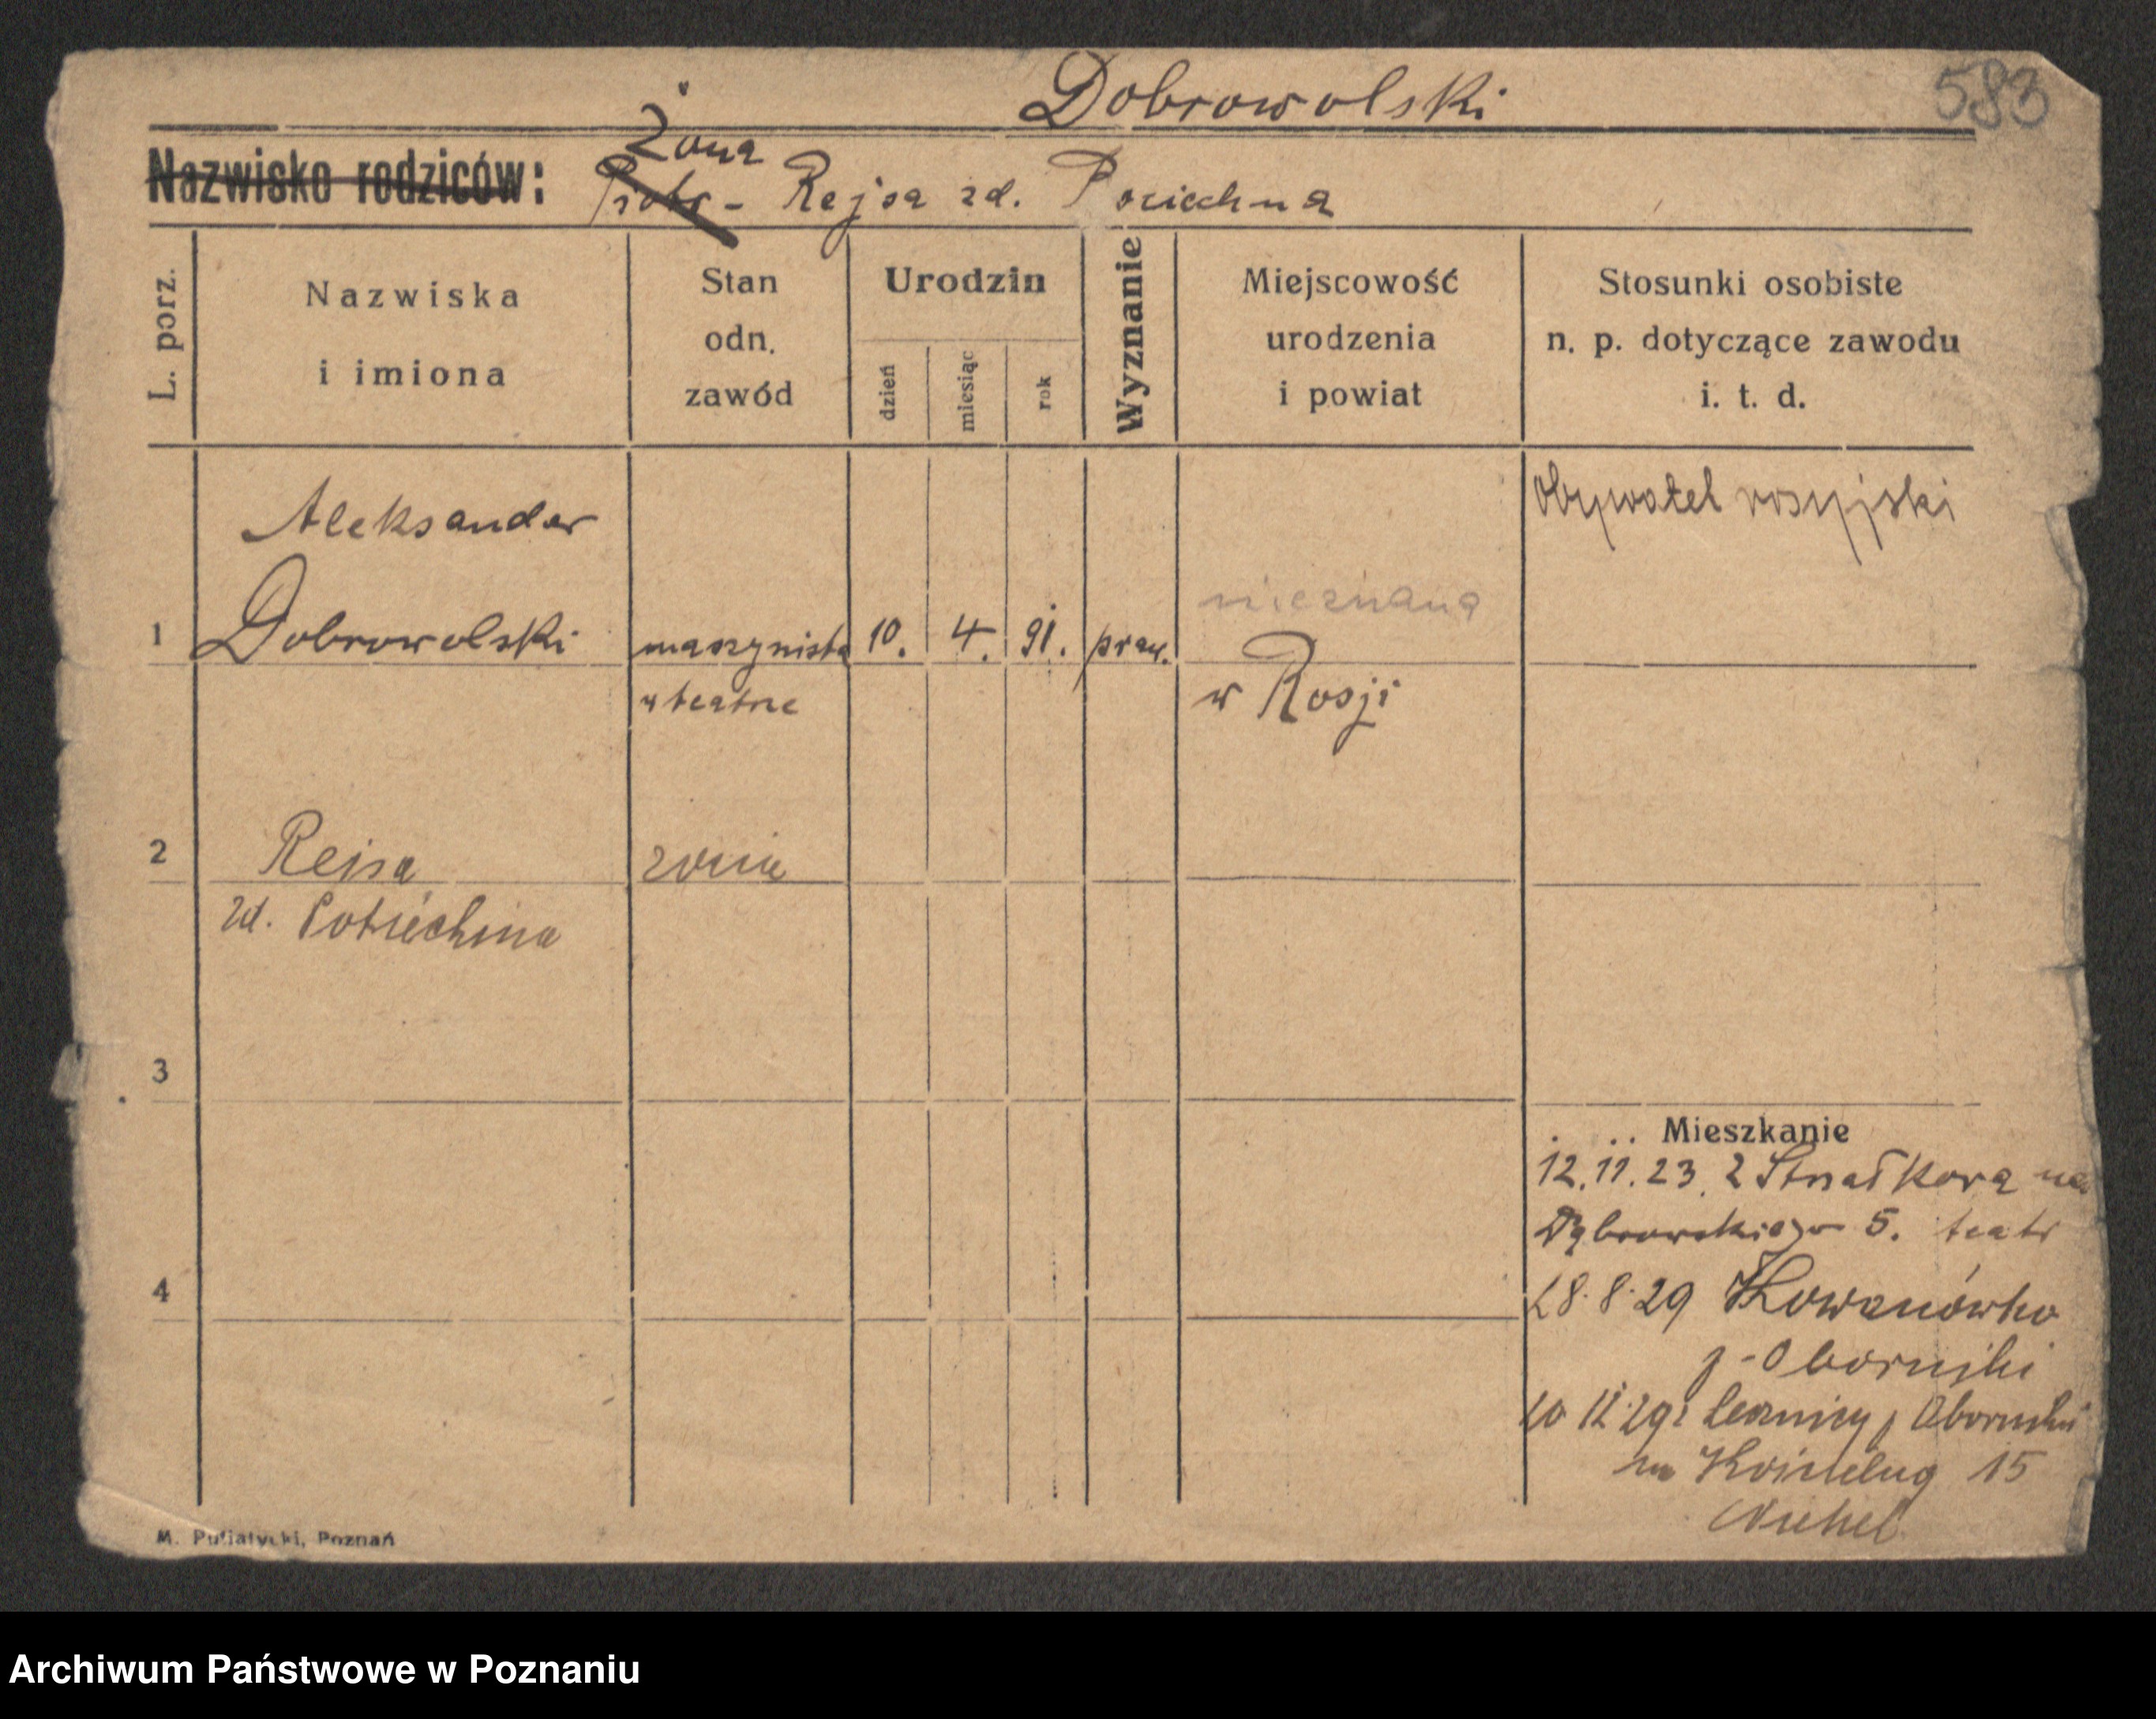 Dobrowolski
583
Żona
Nazwisko rodziców: Piotr - Rejsa zd. Pociechna
L. porz.
Nazwiska
i imiona
Stan
odn.
zawód
Urodzin
dzień
miesiąc
rok
Wyznanie
Miejscowość
urodzenia
i powiat
Stosunki osobiste
n. p. dotyczące zawodu
i. t. d.
obywatel rosyjski
Aleksander
nieznana
1 Dobrowolski maszynista 10. 4. 91. praw.
w teatrze
w Rosji
2 Rejsa żona
zd. Potiechina
3
Mieszkanie
12.11.23. z Strzałkowa na
Dąbrowskiego 5. teatr
4
28.8.29 Kowanówko
p-Oborniki
20 12.29 z Lecznicy p Oborniki
na 15
M. Putiatycki, Poznań
Archiwum Państwowe w Poznaniu